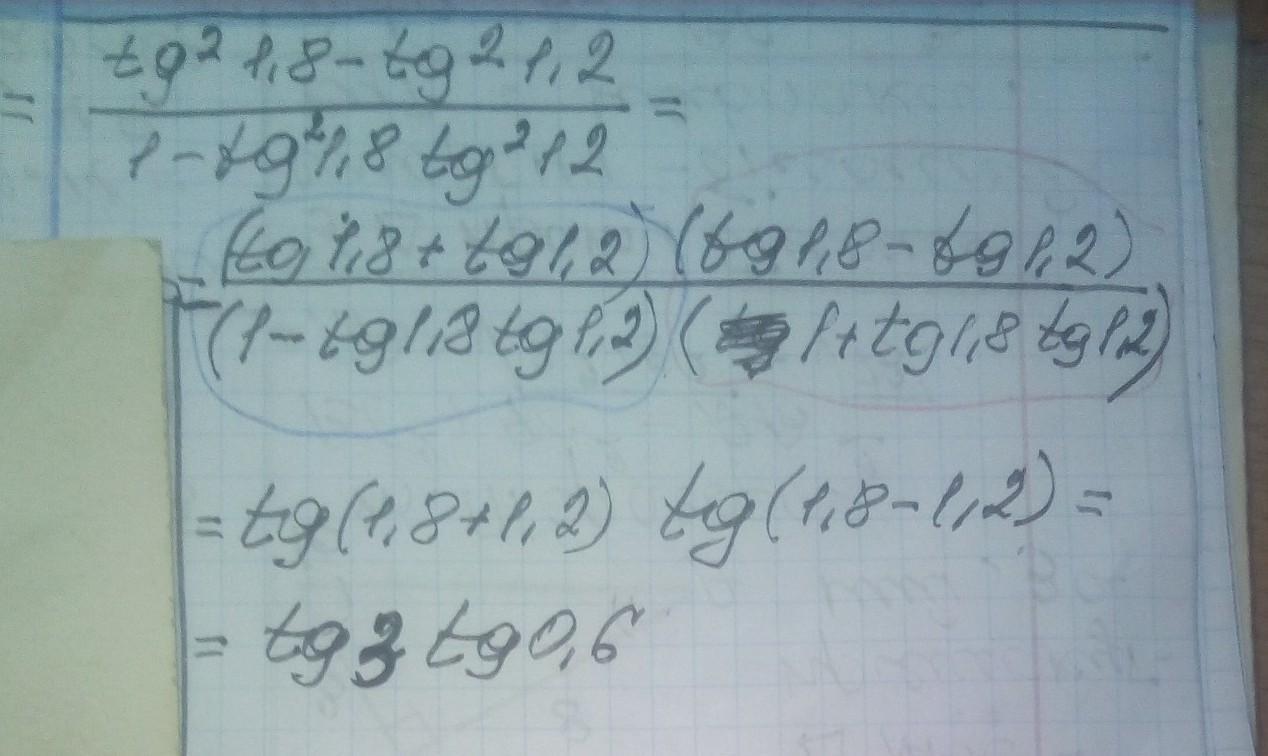 = tg² 1,8 - tg² 1,2 =
1 - tg² 1,8 tg² 1 2
= (tg 1,8 + tg 1,2) (tg 1,8 - tg 1,2)
(1 - tg 1,8 tg 1,2) ( 1 + tg 1,8 tg 1,2)
= tg (1,8 + 1,2) tg (1,8 - 1,2) =
= tg 3 tg 0,6